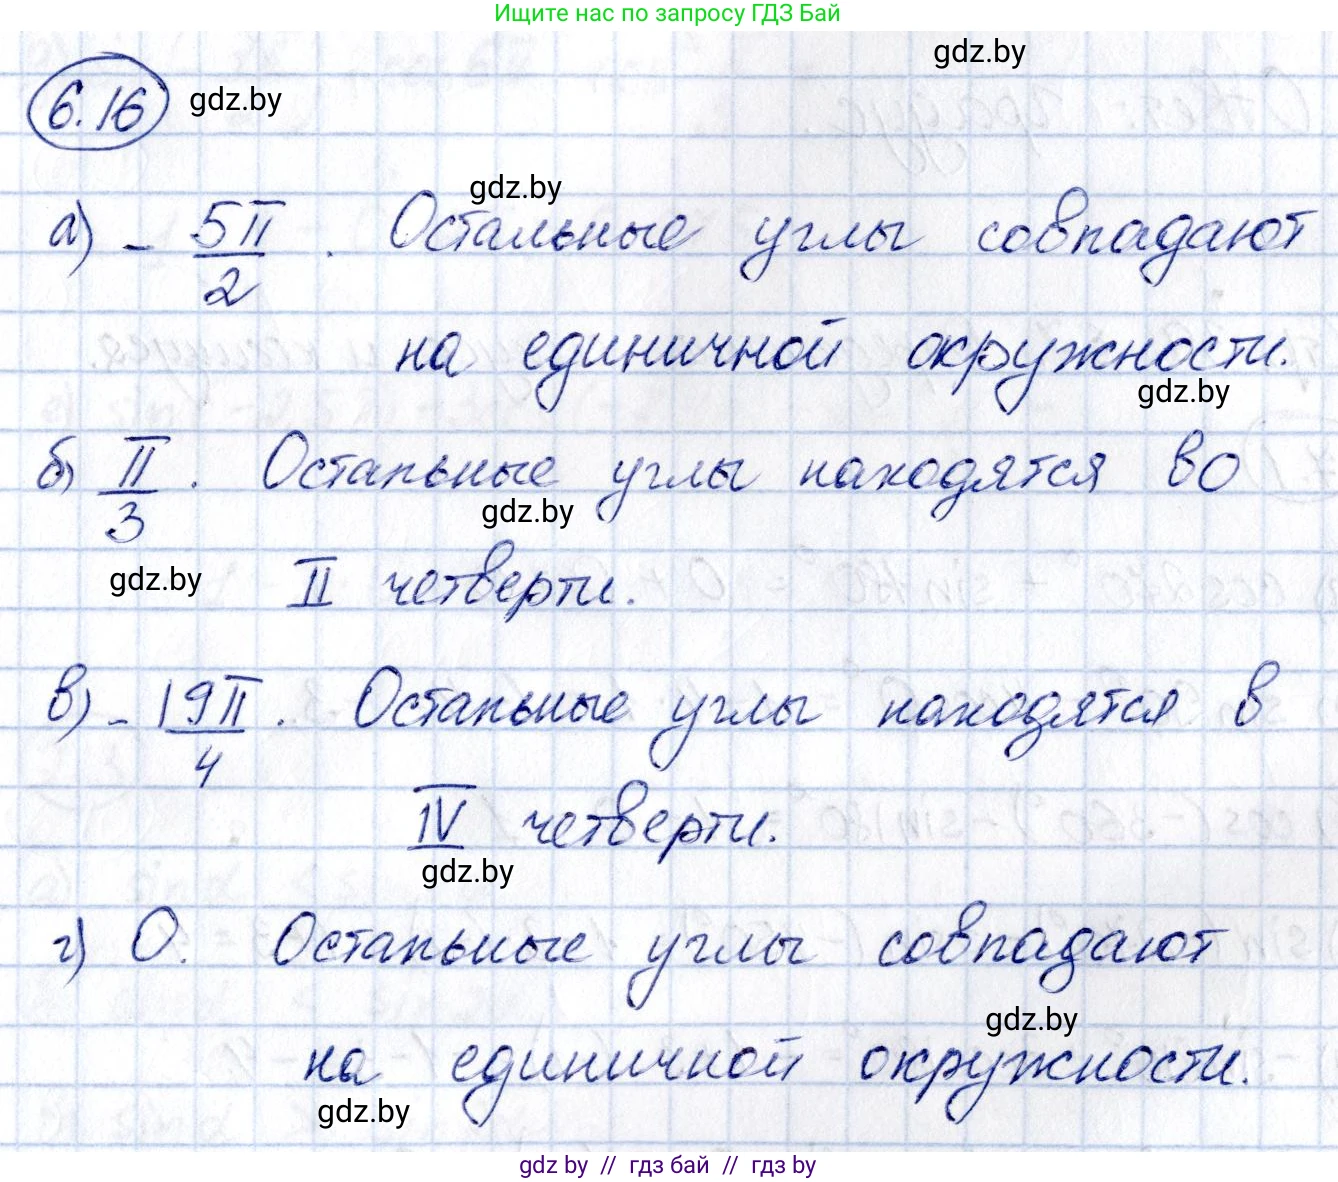 Ищите нас по запросу ГДЗ Бай
gdz.by
6.16 gdz.by
gdz.by
а) - 5π/2 . Остальные углы совпадают
на единичной окружности.
gdz.by
б) π/3 . Остальные углы находятся во
gdz.by
II четверти.
gdz.by
в) - 19π/4 . Остальные углы находятся в
IV четверти.
gdz.by
г) 0. Остальные углы совпадают
gdz.by
на единичной окружности.
gdz.by
gdz by // гдз бай // gdz by